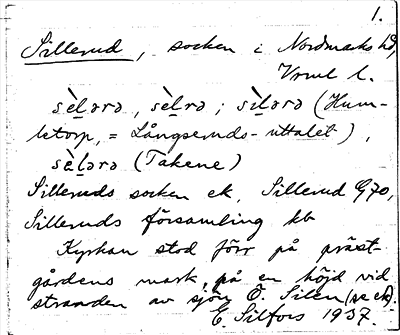 1.
Sillerud, socken i Nordmarks hd,
Vrml l.
sèlərə, sèlrə; sìlərə (Hum-
letorp, = Långseruds-uttalet),
sèlərə (Takene)
Silleruds socken ek, Sillerud G70,
Silleruds församling kb
Kyrkan stod förr på präst-
gårdens mark, på en höjd vid
stranden av sjön Ö. Silen (se ek).
E Silfors 1937.